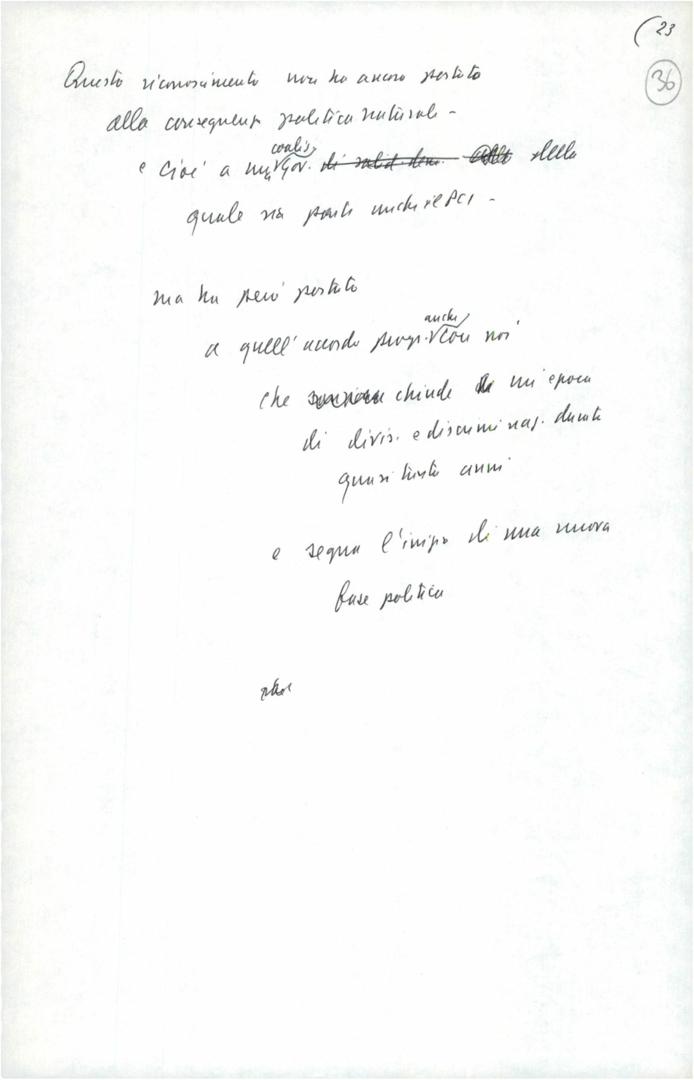 (23
36
Questo riconoscimento non ha ancora portato
alla conseguenza politica naturale -
e cioè a un coaliz. gov. di solid dem. della
quale sia parte anche il PCI -
ma ha però portato
a quell'accordo progr. anche con noi
che chiude un'epoca
di divis. e discriminaz. durata
quasi trenta anni
e segna l'inizio di una nuova
fase politica